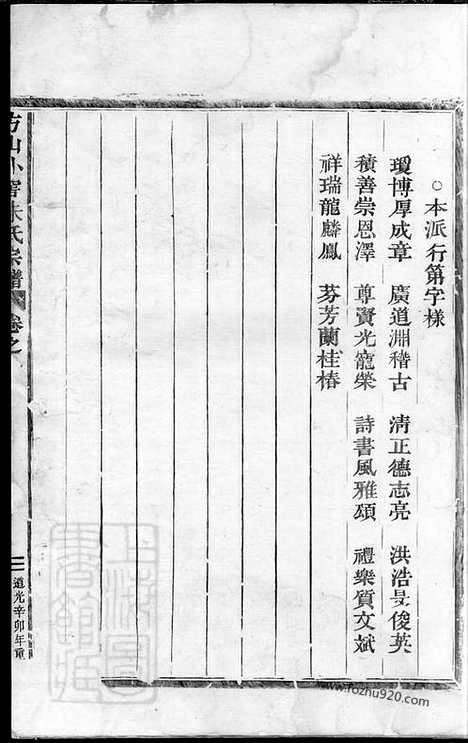 ○本派行第字樣
瓊博厚成章 廣道淵稽古 清正德志亮 洪浩旻俊英
積善崇恩澤 尊賢光寵榮 詩書風雅頌 禮樂質文斌
祥瑞龍麟鳳 芬芳蘭桂椿
方山小窖朱氏宗譜 卷之
二 道光辛卯年重
上海圖書館藏
www.fozhu920.com